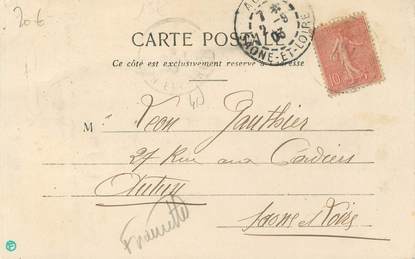 20 €
CARTE POSTALE
Ce côté est exclusivement réservé à l'adresse
7 * 9
05
SAONE-ET-LOIRE
10
M Léon Gauthier
27 Rue aux Cordiers
Autun
Saone et Loire